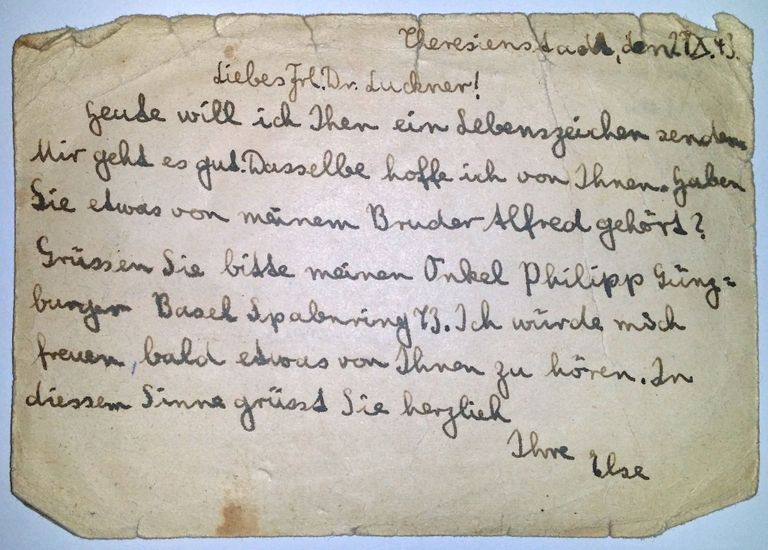 Theresienstadt, den 27.IX.43.
Liebes Frl. Dr. Luckner!
Heute will ich Ihen ein Lebenszeichen senden.
Mir geht es gut. Dasselbe hoffe ich von Ihnen. Haben
Sie etwas von meinem Bruder Alfred gehört?
Grüssen Sie bitte meinen Onkel Philipp Günz=
burger Basel Spalenring 73. Ich würde mich
freuen, bald etwas von Ihnen zu hören. In
diessem Sinne grüsst Sie herzlich
Ihre Else